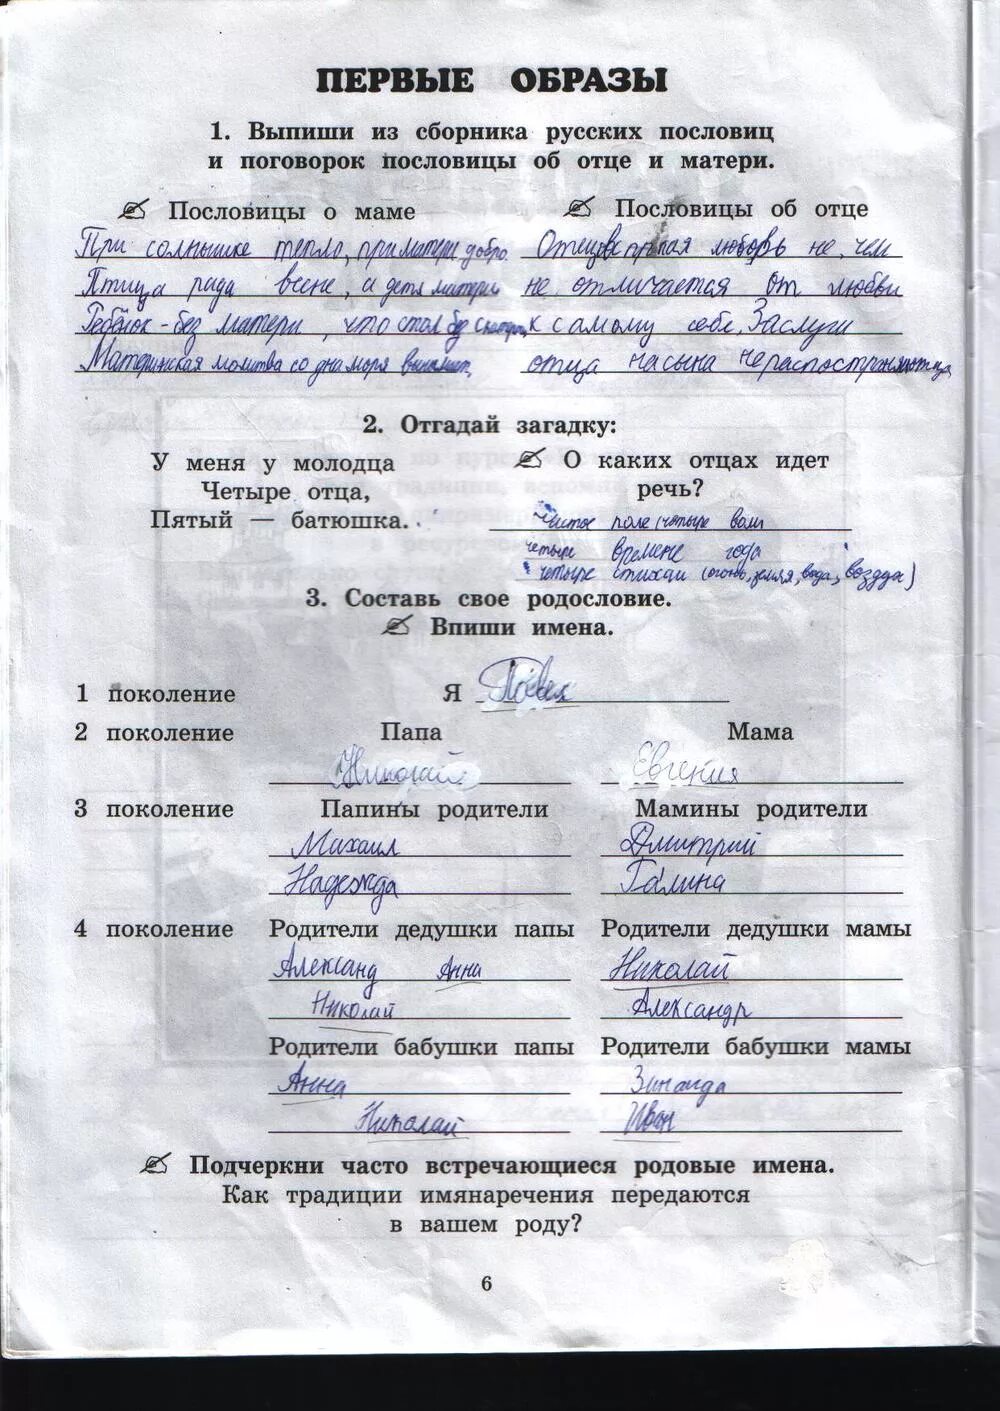 ПЕРВЫЕ ОБРАЗЫ
1. Выпиши из сборника русских пословиц
и поговорок пословицы об отце и матери.
Пословицы о маме
При солнышке тепло, при матери добро
Птица рада весне, а дитя матери
Ребёнок - без матери, что стол без скатерти
Материнская молитва со дна моря вынимет.
Пословицы об отце
любовь не, чем
не отличается от любви
к самому себе. Заслуги
отца на сына не распространяются
2. Отгадай загадку:
У меня у молодца
Четыре отца,
Пятый — батюшка.
О каких отцах идет
речь?
Чистое поле (четыре воли
четыре времене года
четыре стихаи (огонь, земля, вода,
3. Составь свое родословие.
Впиши имена.
1 поколение Я Павел
2 поколение Папа Мама
Николай Евгения
3 поколение Папины родители Мамины родители
Михаил Дмитрий
Надежда Галина
4 поколение Родители дедушки папы Родители дедушки мамы
Александ Анна Николай
Николай Александр
Родители бабушки папы Родители бабушки мамы
Анна Зинаида
Николай Иван
Подчеркни часто встречающиеся родовые имена.
Как традиции имянаречения передаются
в вашем роду?
6